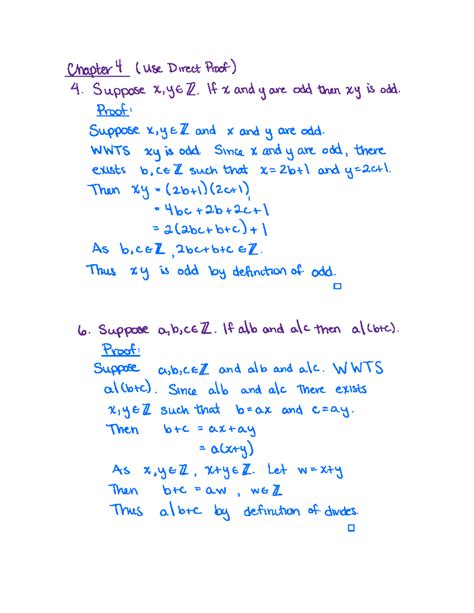 Chapter 4 (Use Direct Proof)
4. Suppose x,y∈ℤ. If x and y are odd then xy is odd.
Proof:
Suppose x,y∈ℤ and x and y are odd.
WWTS xy is odd. Since x and y are odd, there
exists b,c∈ℤ such that x=2b+1 and y=2c+1.
Then xy = (2b+1)(2c+1)
= 4bc+2b+2c+1
= 2(2bc+b+c)+1
As b,c∈ℤ, 2bc+b+c∈ℤ.
Thus xy is odd by definition of odd.
□
6. Suppose a,b,c∈ℤ. If a|b and a|c then a|(b+c).
Proof:
Suppose a,b,c∈ℤ and a|b and a|c. WWTS
a|(b+c). Since a|b and a|c there exists
x,y∈ℤ such that b=ax and c=ay.
Then b+c = ax+ay
= a(x+y)
As x,y∈ℤ, x+y∈ℤ. Let w=x+y
Then b+c = aw, w∈ℤ
Thus a|b+c by definition of divides.
□